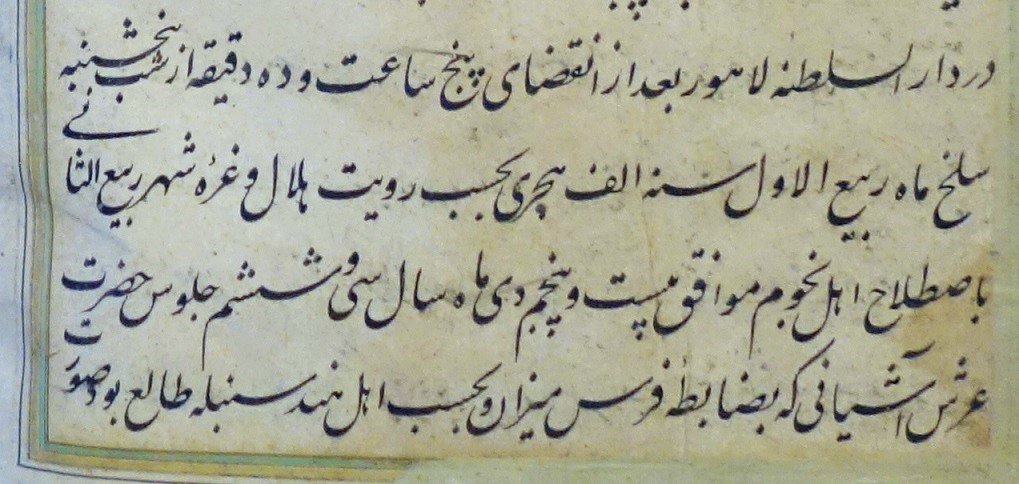 در دار السلطنه لاهور بعد از انقضای پنج ساعت و ده دقیقه از شب پنجشنبه
سلخ ماه ربیع الاول سنه الف هجری بحسب رویت هلال و غره شهر ربیع الثانی
باصطلاح اهل نجوم موافق بیست و پنجم دی ماه سال سی و ششم جلوس حضرت
عرش آشیانی که بضابطه فرس میزان و بحسب اهل هند سنبله طالع بود صورت